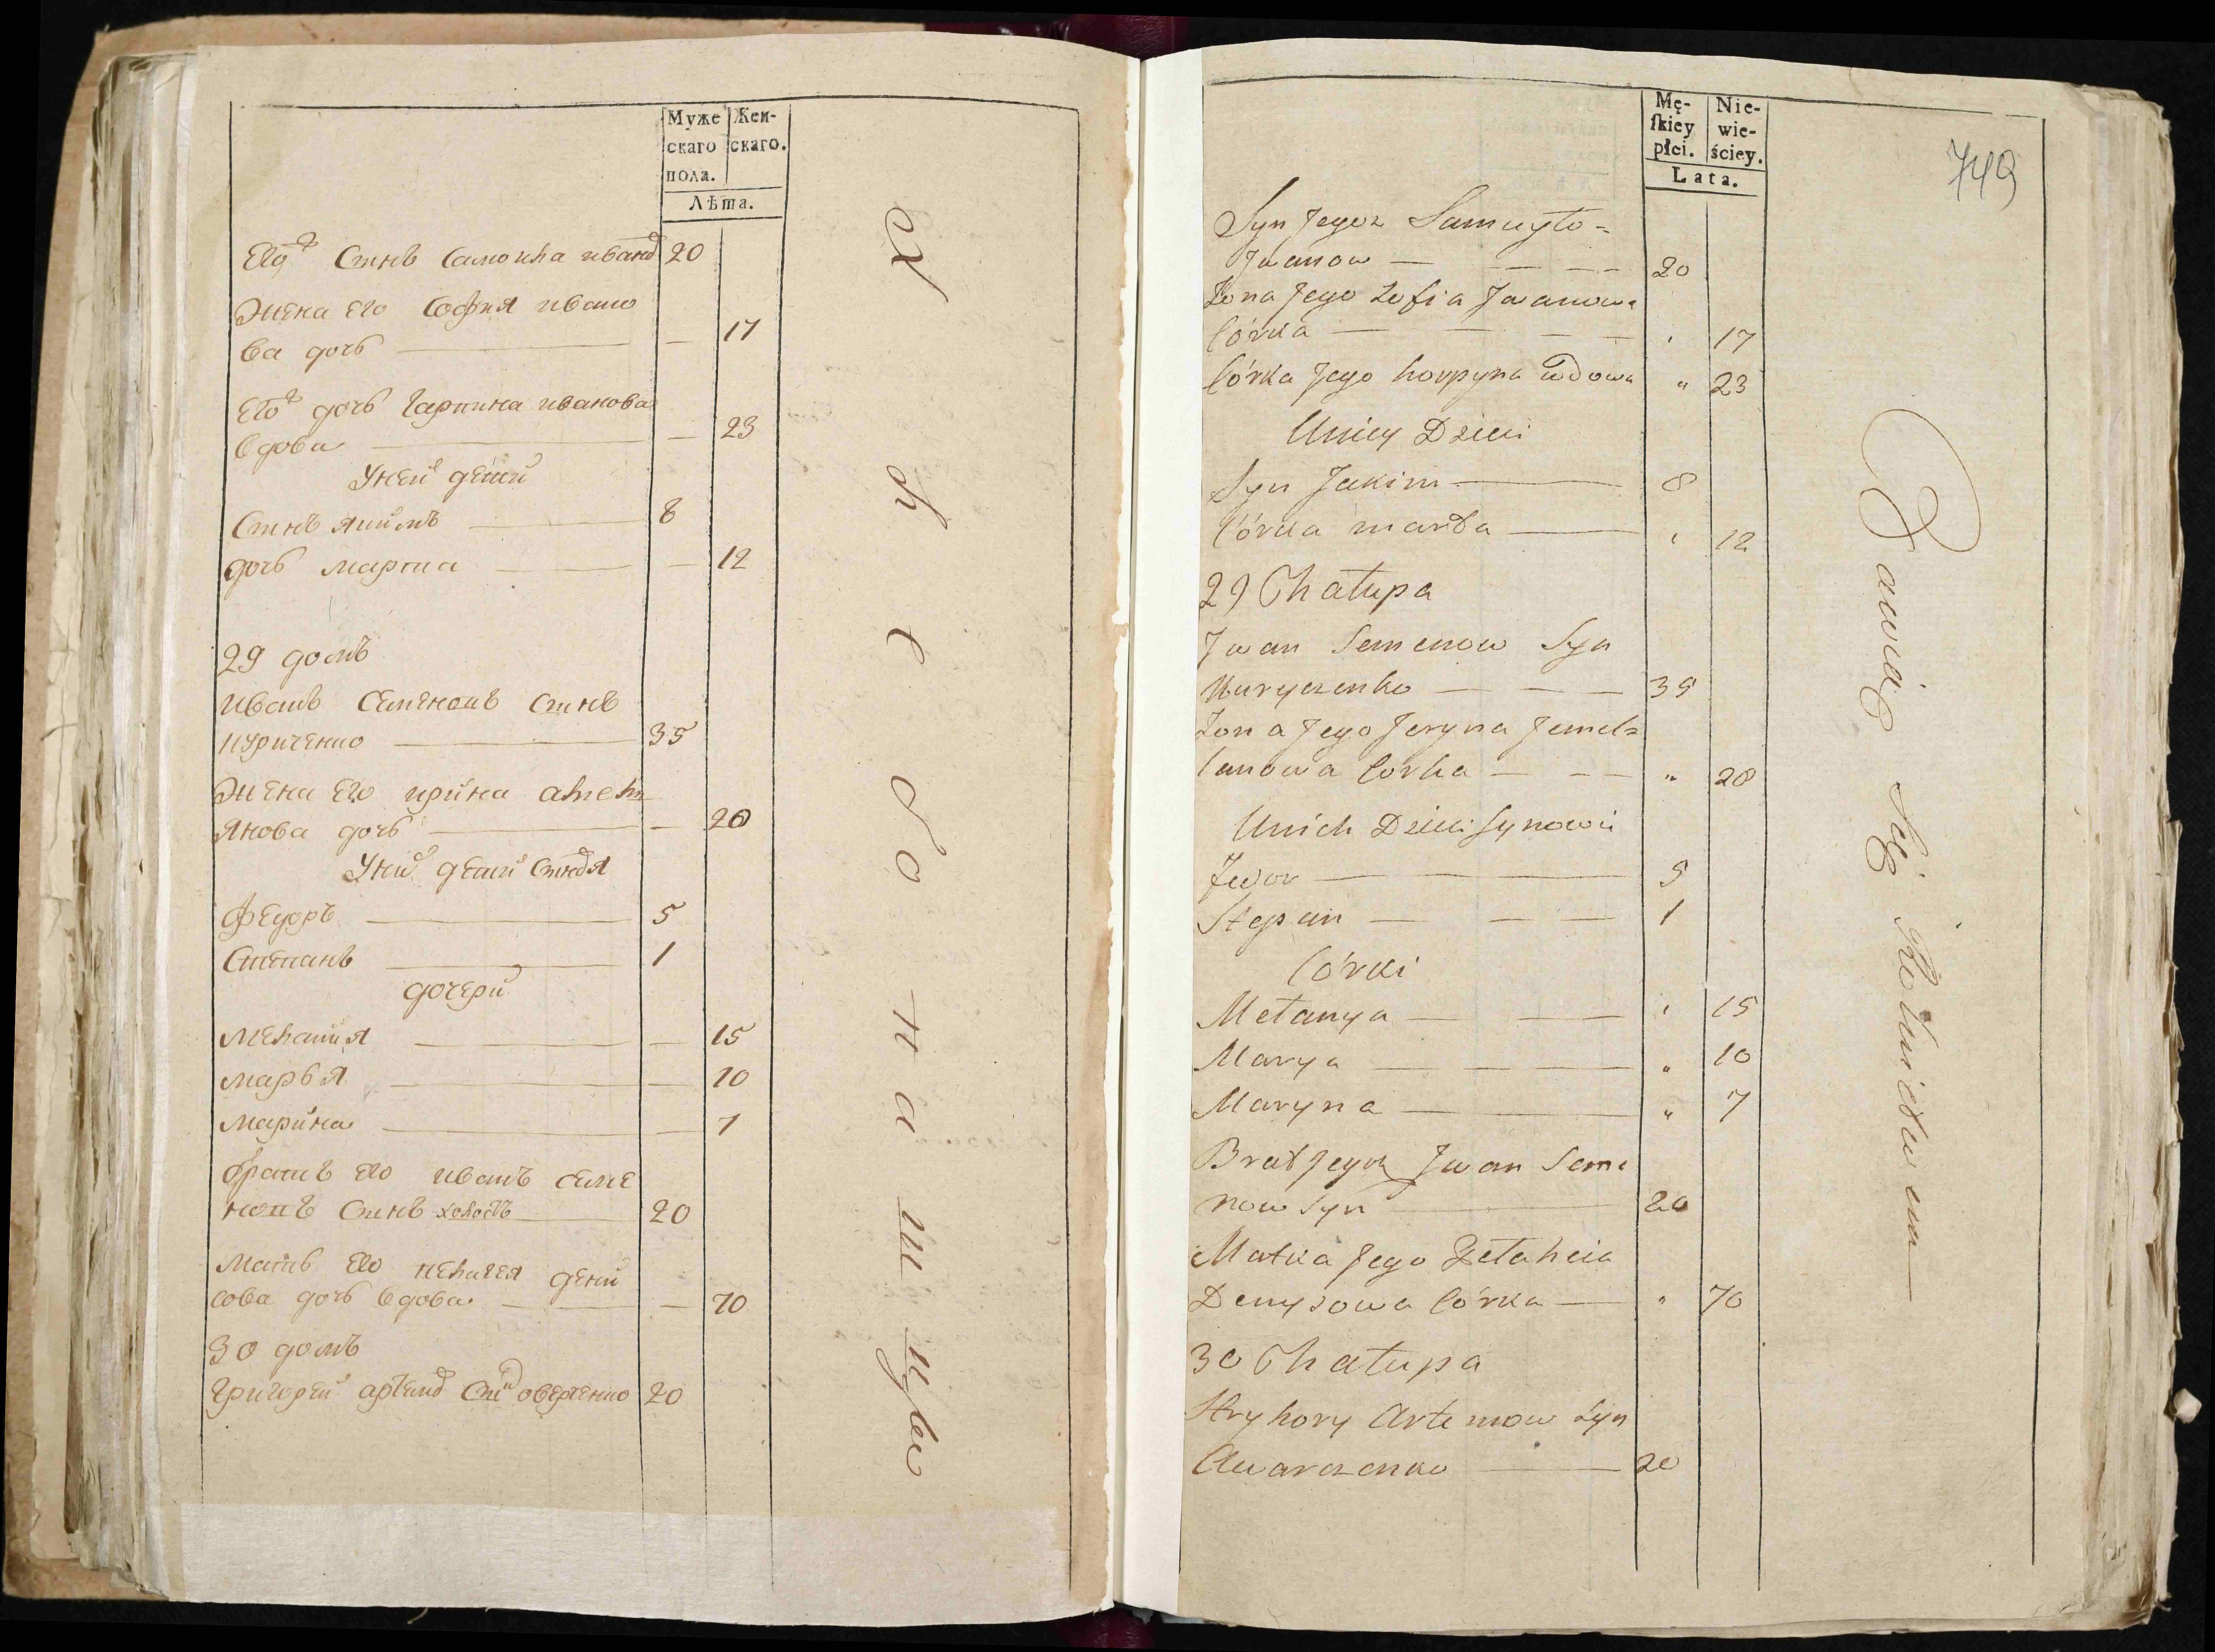 Муже
скаго
пола.
Жен-
скаго.
Лѣта.
Его Синъ Самоила иванов 20
Жена Его София ивано
ва дочь — 17
Его дочь Гарпина иванова
вдова — 23
Унеи дѣтей
Синъ якимъ 8
дочь марта — 12
29 домъ
иванъ Семеновъ Синъ
куриченко 35
Жена Его ирина
янова дочь — 28
Уних детей
федоръ 5
Степанъ 1
дочери
мелания — 15
марья — 10
марина — 7
братъ Его иванъ семе
новъ Синъ холостъ 20
мать Его пелагея дени
сова дочь вдова — 70
30 домъ
григореи 20
Mę-
skiey
płci.
Nie-
wie-
ściey.
Lata.
749
Syn Jegoz Samuyło=
Jwanow — — — 20
Żona Jego Zofia Jwanowa
Córka — — — 17
Córka Jego horpyna wdowa " 23
Uniey Dzieci
Syn Jakim — 8
Córka marta — 12
29 Chałupa
Jwan Semenow Syn
Kuryczenko — — — 35
Żona Jego Jeryna Jemel=
lanowa Corka — — — " 28
Unich Dzieci Synowie
Fedor — 5
Stepan — — — 1
Córki
Mełanya — — 15
Marya — — — " 10
Maryna — — " 7
Brat Jegoz Jwan Seme
now Syn — 20
Matka Jego Pełaheia
Denysowa Córka — " 70
30 Chałupa
Hryhory Artemow Syn
Awarczenko — 20